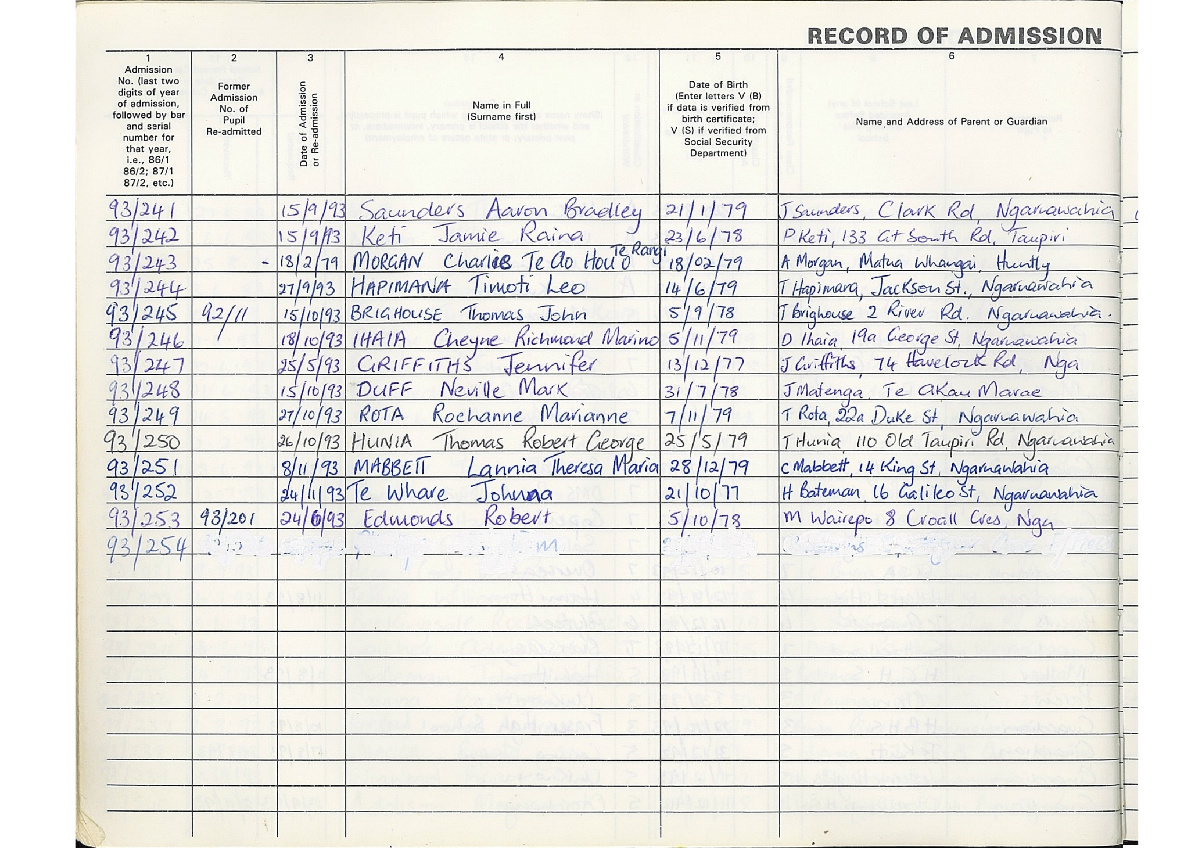 RECORD OF ADMISSION
1 2 3 4 5 6
Admission No. (last two digits of year of admission, followed by bar and serial number for that year, i.e., 86/1 86/2; 87/1 87/2, etc.)
Former Admission No. of Pupil Re-admitted
Date of Admission or Re-admission
Name in Full (Surname first)
Date of Birth (Enter letters V (B) if data is verified from birth certificate; V (S) if verified from Social Security Department)
Name and Address of Parent or Guardian
93/241 15/9/93 Saunders Aaron Bradley 21/1/79 J Saunders, Clark Rd, Ngaruawahia
93/242 15/9/93 Keti Jamie Raina 23/6/78 P Keti, 133 Gt South Rd, Taupiri
93/243 - 18/2/79 MORGAN Charlie Te Ao Hou o Te Rangi 18/02/79 A Morgan, Matua Whangai, Huntly
93/244 27/9/93 HAPIMANA Timoti Leo 14/6/79 T Hapimana, Jackson St., Ngaruawahia
93/245 92/11 15/10/93 BRIGHOUSE Thomas John 5/9/78 T Brighouse 2 River Rd. Ngaruawahia.
93/246 18/10/93 IHAIA Cheyne Richmond Marino 5/11/79 D Ihaia, 19a George St, Ngaruawahia
93/247 25/5/93 GRIFFITHS Jennifer 13/12/77 J Griffiths, 74 Havelock Rd, Nga
93/248 15/10/93 DUFF Neville Mark 31/7/78 J Matenga, Te Akau Marae
93/249 27/10/93 ROTA Rochanne Marianne 7/11/79 T Rota, 22a Duke St, Ngaruawahia
93/250 26/10/93 HUNIA Thomas Robert George 25/5/79 T Hunia, 110 Old Taupiri Rd, Ngaruawahia
93/251 8/11/93 MABBETT Lannia Theresa Maria 28/12/79 C Mabbett, 14 King St, Ngaruawahia
93/252 24/11/93 Te Whare Johnna 21/10/77 H Bateman, 16 Galileo St, Ngaruawahia
93/253 93/201 24/6/93 Edmonds Robert 5/10/78 M Wairepo 8 Croall Cres, Nga
93/254